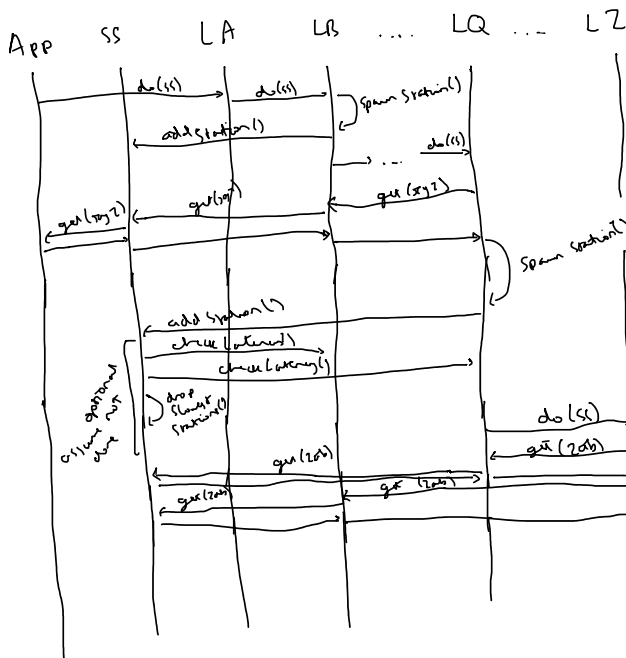 App SS LA LB .... LQ ... LZ
do(ss) do(ss)
spawn station()
add station()
... do(ss)
get(xyz)
get(xyz)
get(xyz)
spawn station()
add station()
check latency()
check latency()
drop
slowest
stations()
optional
assume not
done
do(ss)
get(zab)
get(zab)
get(zab)
get(zab)